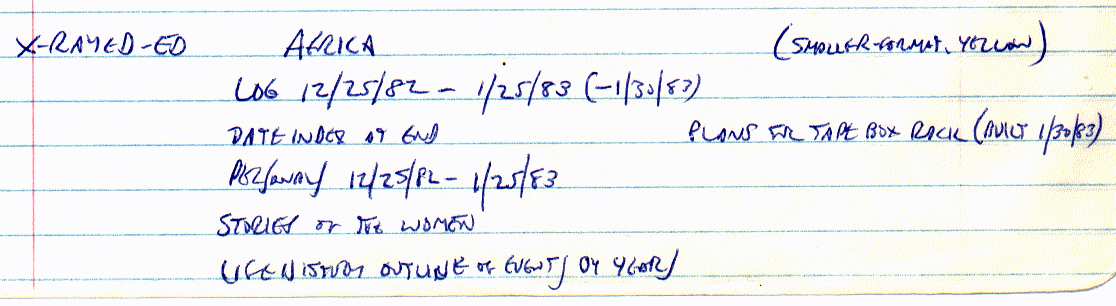 X-RAYED-ED AFRICA (SMALLER-FORMAT, YELLOW)
LOG 12/25/82 - 1/25/83 (-1/30/83)
DATE INDEX AT END PLANS FOR TAPE BOX RACK (BUILT 1/30/83)
PERSONAL 12/25/82 - 1/25/83
STORIES OF THE WOMEN
LIFE HISTORY OUTLINE OF EVENTS BY YEARS